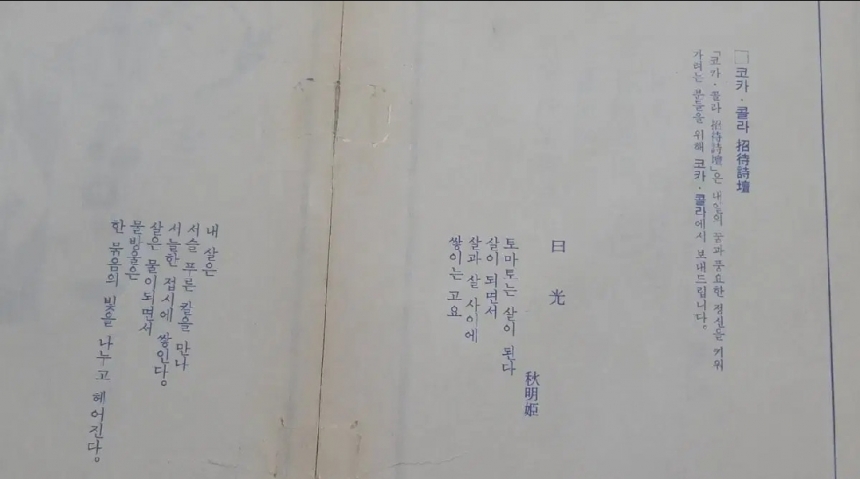 코카·콜라 招待詩壇
「코카·콜라 招待詩壇」은 내일의 꿈과 풍요한 정신을 키워
가려는 분들을 위해 코카·콜라에서 보내드립니다.
日光
秋明姬
토마토는 살이 된다
살이 되면서
살과 살 사이에
쌓이는 고요
내 살은
서슬 푸른 칼을 만나
시늘한 접시에 쌓인다。
살은 물이되면서
물방울은
한 묶음의 빛을 나누고 헤어진다。